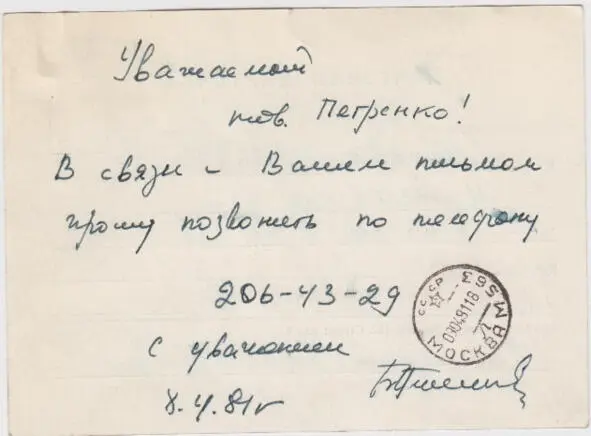 Уважаемой
тов. Петренко!
В связи с Вашим письмом
прошу позвонить по телефону
206-43-29
с уважением
8.4.81г
СССР
МОСКВА